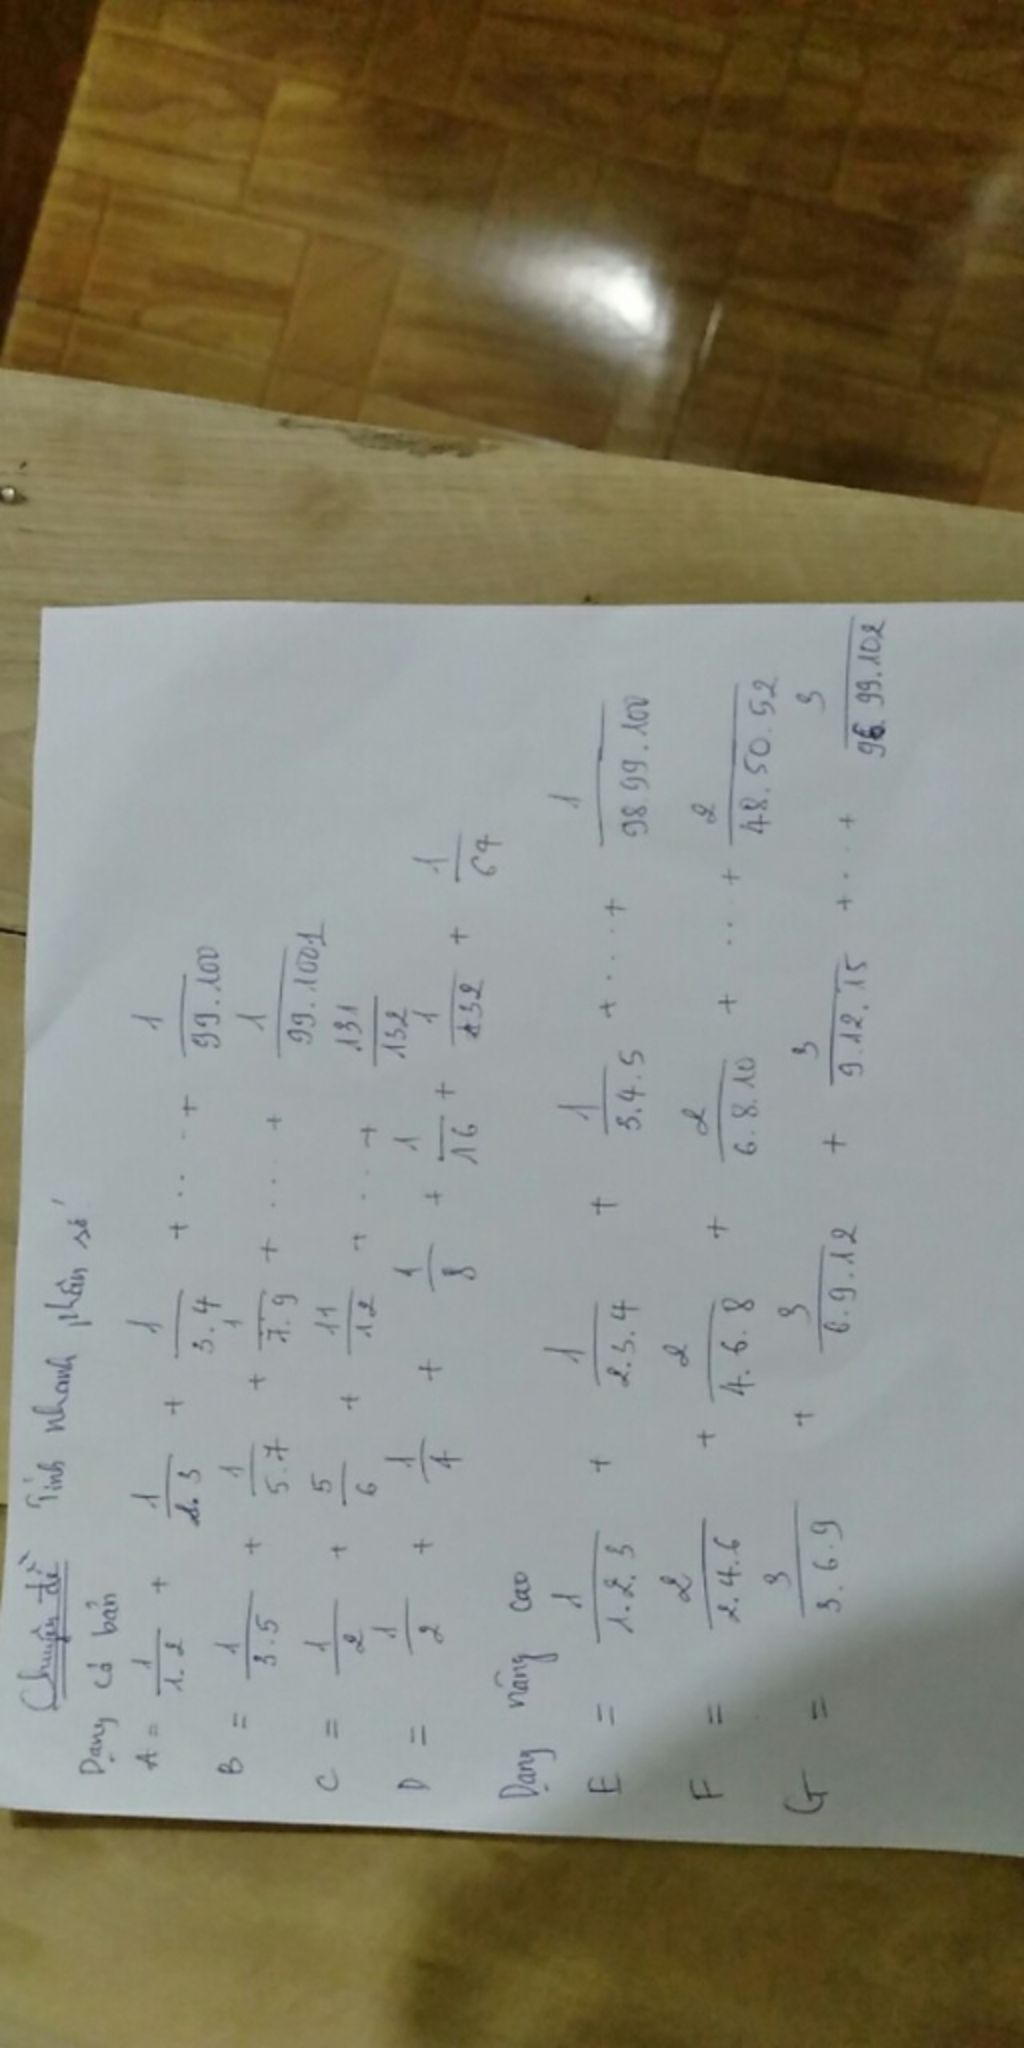 Chuyên đề Tính nhanh phân số
Dạng cơ bản
A = 1/1.2 + 1/2.3 + 1/3.4 + ... + 1/99.100
B = 1/3.5 + 1/5.7 + 1/7.9 + .... + 1/99.1001
C = 1/2 + 5/6 + 11/12 + ... + 131/132
D = 1/2 + 1/4 + 1/8 + 1/16 + 1/32 + 1/64
Dạng nâng cao
E = 1/1.2.3 + 1/2.3.4 + 1/3.4.5 + .... + 1/98.99.100
F = 2/2.4.6 + 2/4.6.8 + 2/6.8.10 + ... + 2/48.50.52
G = 3/3.6.9 + 3/6.9.12 + 3/9.12.15 + .... + 3/96.99.102